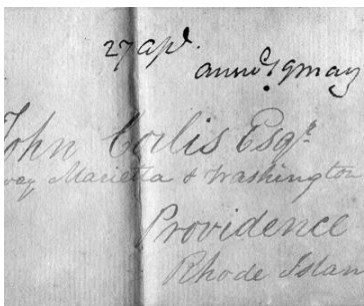 27 apl.
annd 19 may
John Corlis Esqr.
way Marietta & Washington
Providence
Rhode Islan